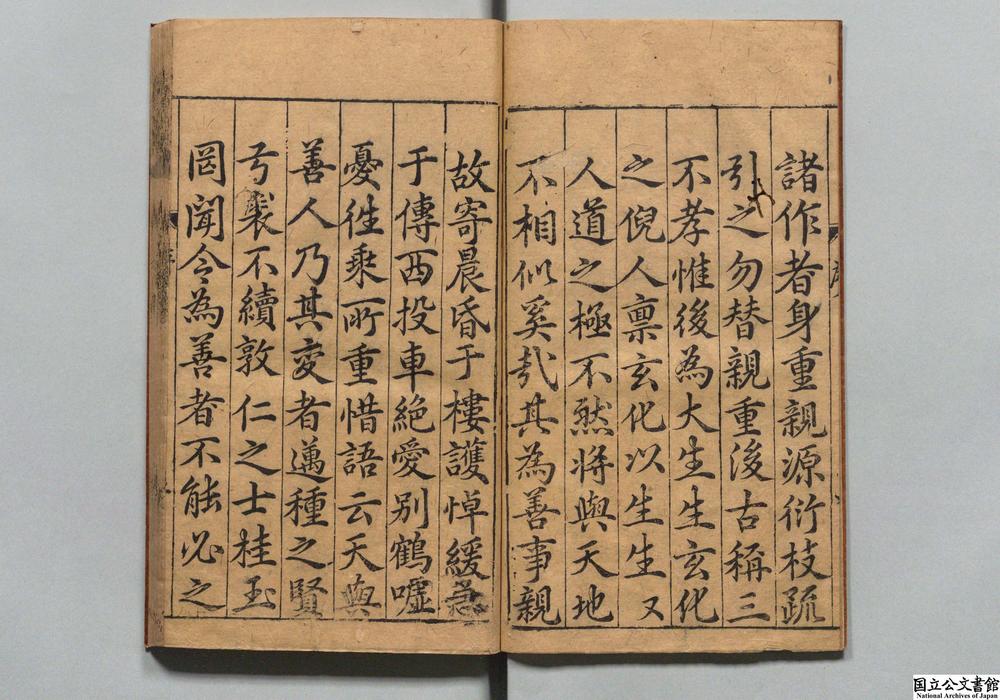 諸作者身重親源衍枝䟽
引之勿替親重後古稱三
不孝惟後為大生生玄化
之倪人禀玄化以生生又
人道之極不然將與天地
不相似奚㢤其為善事親
故寄晨昏于樓護悼緩急
于傳西投車絶愛别鶴嘘
憂徃乗所重惜語云天與
善人乃其変者邁種之賢
弓裘不續敦仁之士桂玉
罔聞令為善者不能必之
国立公文書館
National Archives of Japan